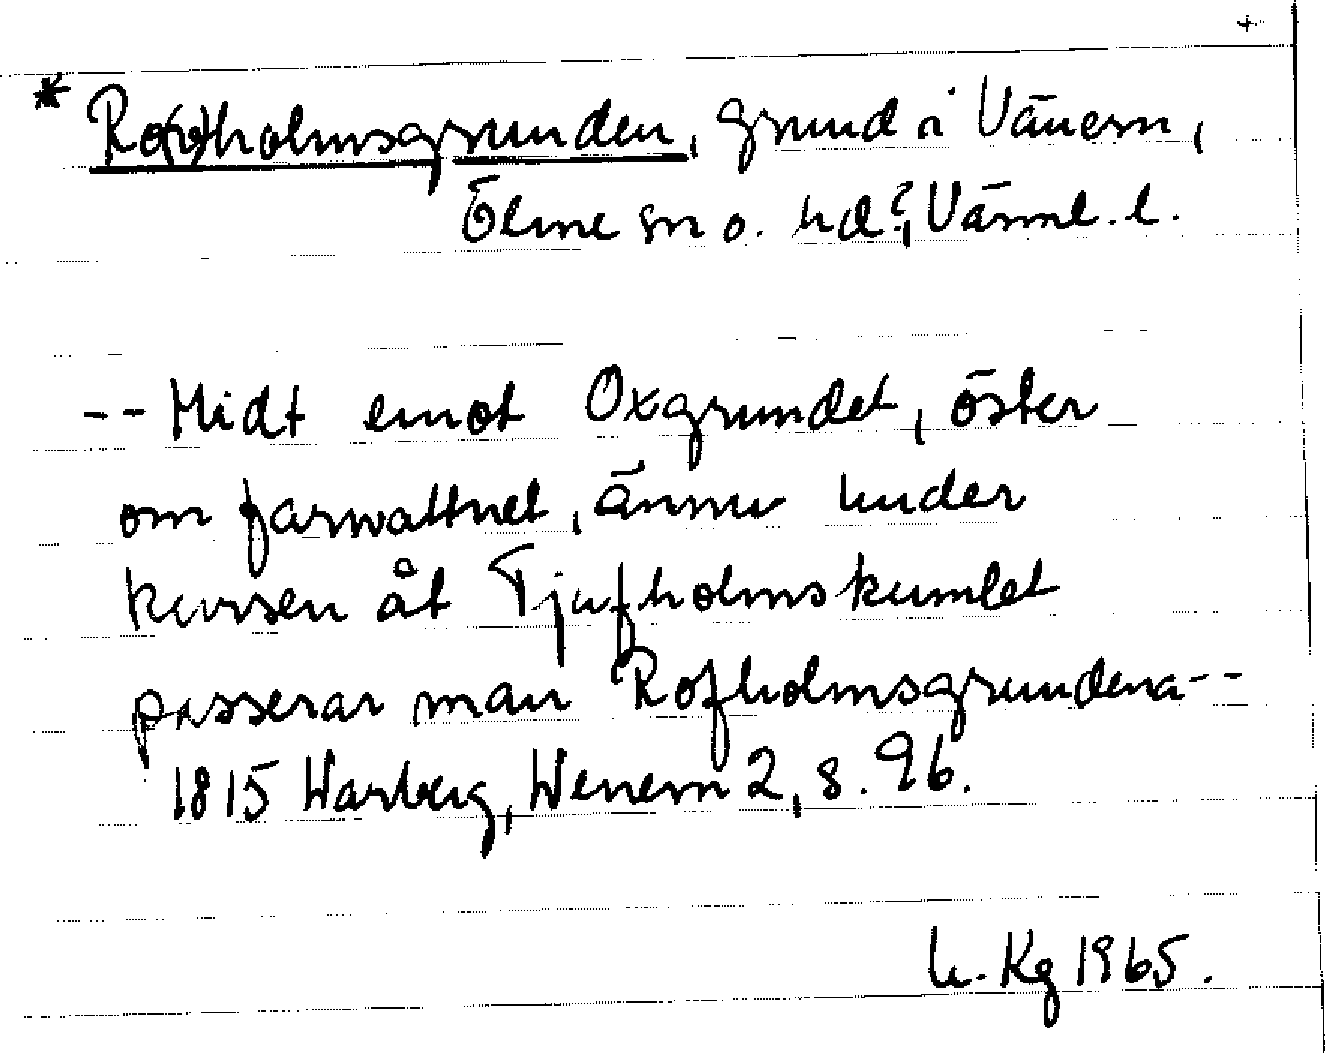 +
* Ro(v)holmsgrunden, grund i Vänern,
Ölme sn o. hd?, Värml. l.
-- Midt emot Oxgrundet, öster
om farwattnet, ännu under
kursen åt Tjufholmskumlet
passerar man Rofholmsgrundena--
1815 Warberg, Wenern 2, s. 96.
Kg 1965.